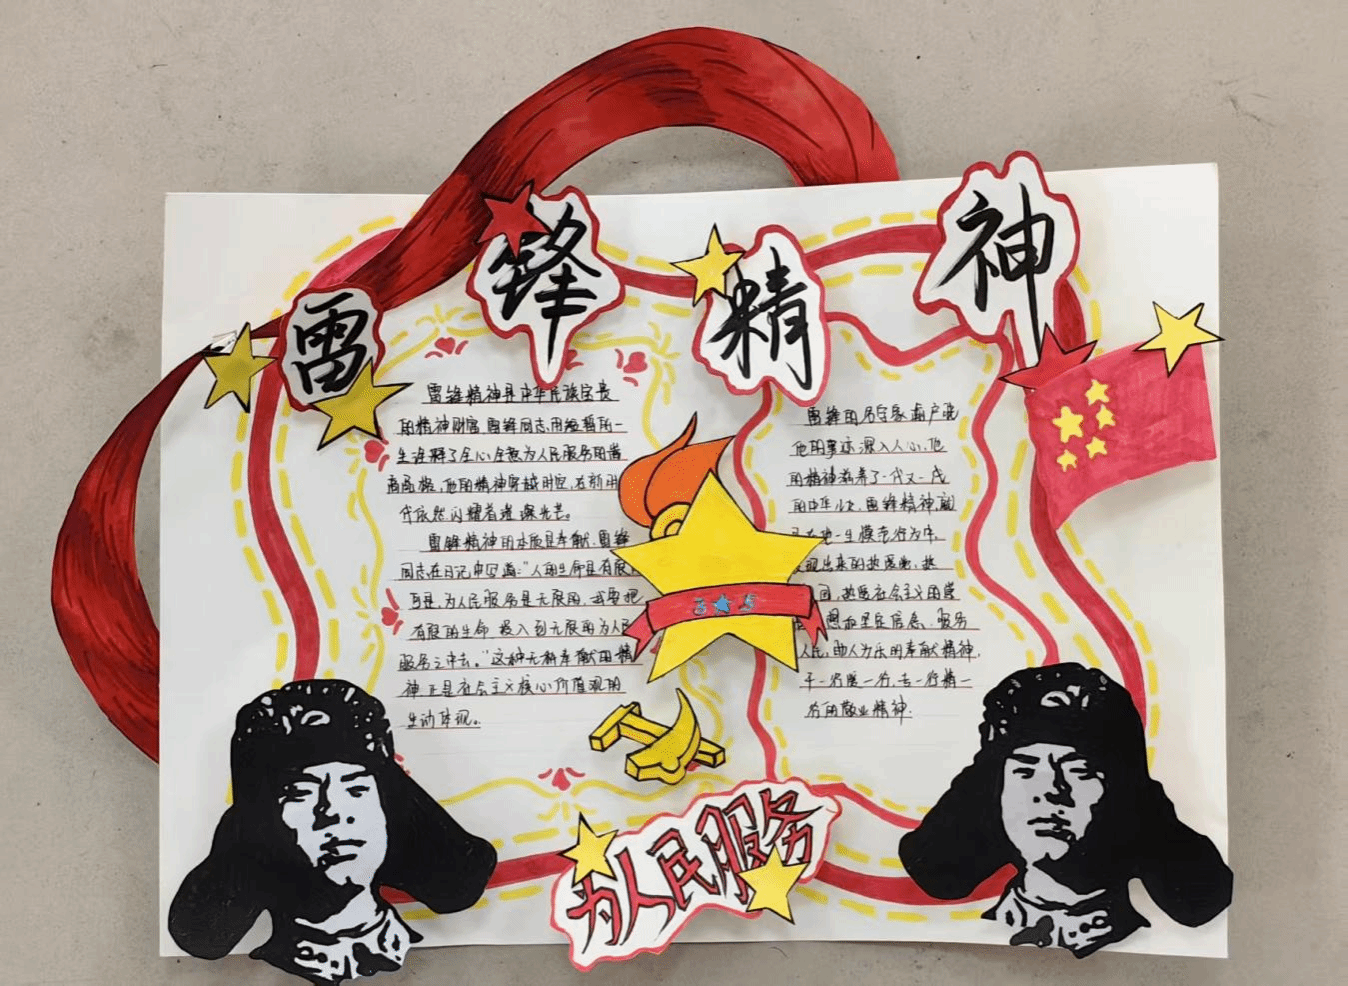 雷锋精神
雷锋精神是中华民族宝贵
的精神财富,雷锋同志用短暂的一
生诠释了全心全意为人民服务的崇
高品格,他的精神穿越时空,在新时
代依然闪耀着璀璨光芒。
雷锋精神的本质是奉献。雷锋
同志在日记中写道:"人的生命是有限
可是,为人民服务是无限的,我要把
有限的生命,投入到无限的为人民
服务之中去。"这种无私奉献的精
神正是社会主义核心价值观的
生动体现。
雷锋的名字家喻户晓
他的事迹深入人心,他
的精神滋养了一代又一代
的中华儿女,雷锋精神,
一生模范行为中,
现出来的热爱党,热
国,热爱社会主义的崇
想和坚定信念,服务
人民,助人为乐的奉献精神,
干一行爱一行,专一行精一
行的敬业精神.
3★5
为人民服务